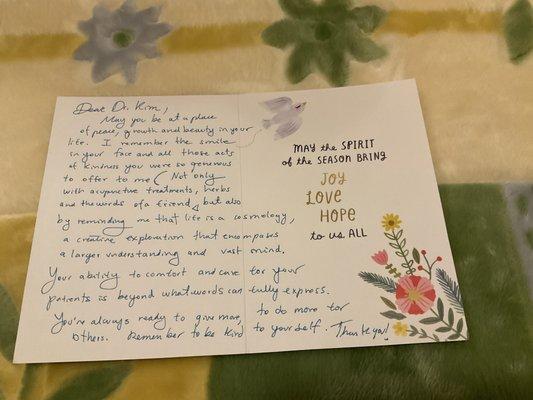 Dear Dr. Kim,
May you be at a place
of peace, growth and beauty in your
life. I remember the smile
in your face and all those acts
of kindness you were so generous
to offer to me (Not only
with acupuncture treatments, herbs
and the words of a friend, but also
by reminding me that life is a cosmology,
a creative exploration that encompases
a larger understanding and vast mind.
Your ability to comfort and care for your
patients is beyond what words can fully express.
You're always ready to give more, to do more for
others. Remember to be kind to yourself. Thank you!
MAY the SPIRIT
of the SEASON BRING
JOY
LOVE
HOPE
to us ALL